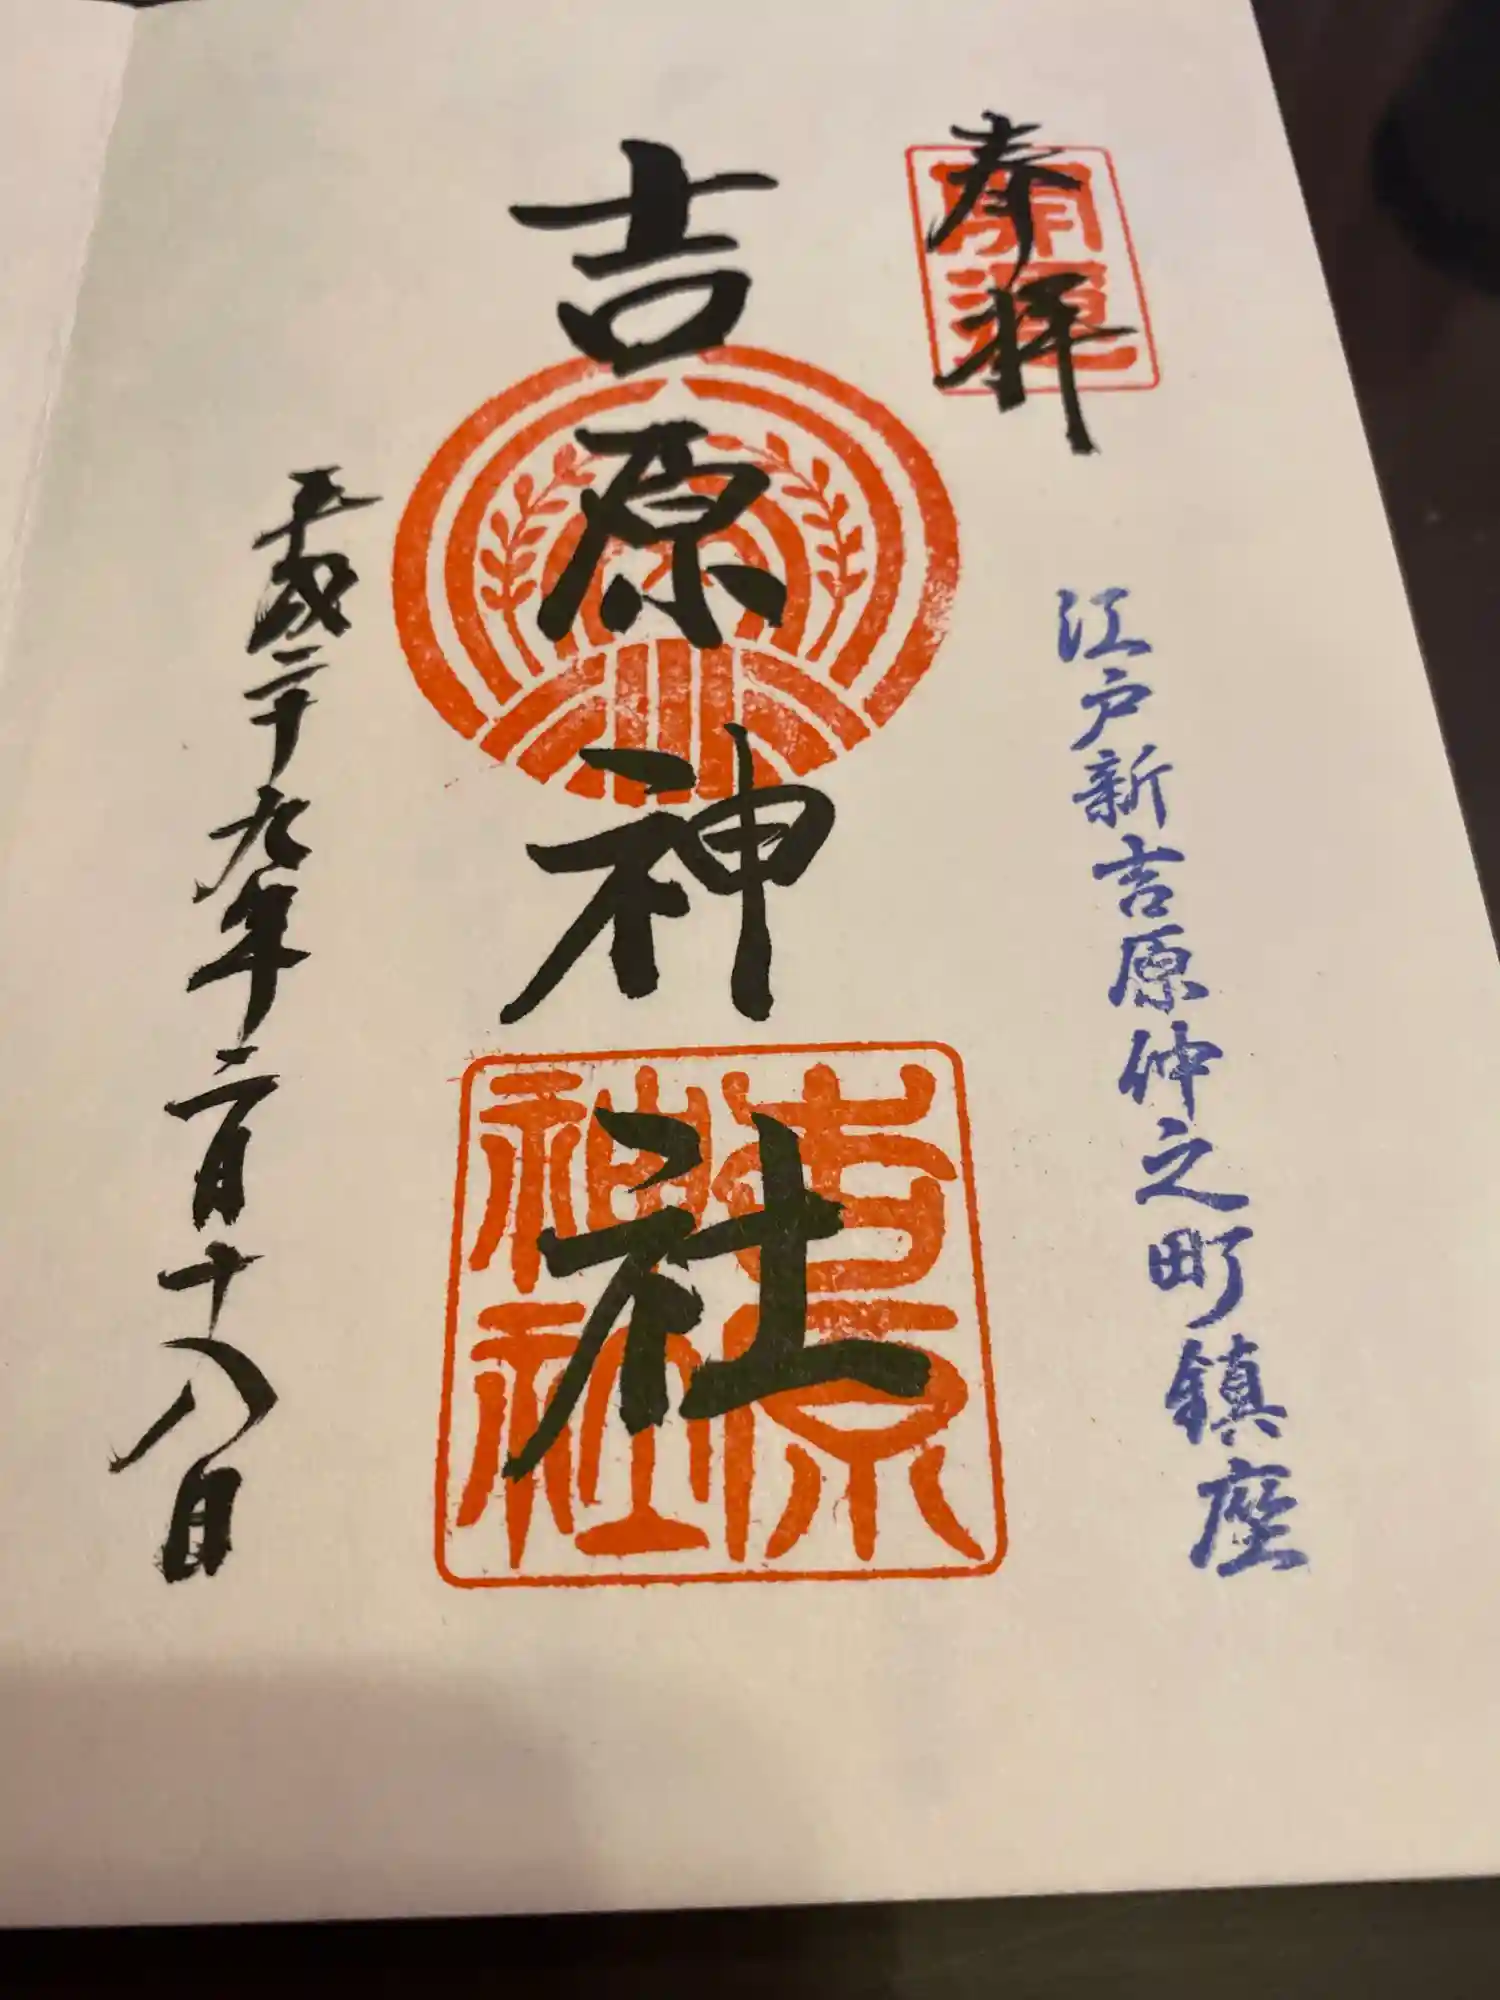 奉拝
開運
江戸新吉原仲之町鎮座
吉原神社
吉原
神社
平成二十九年二月十八日